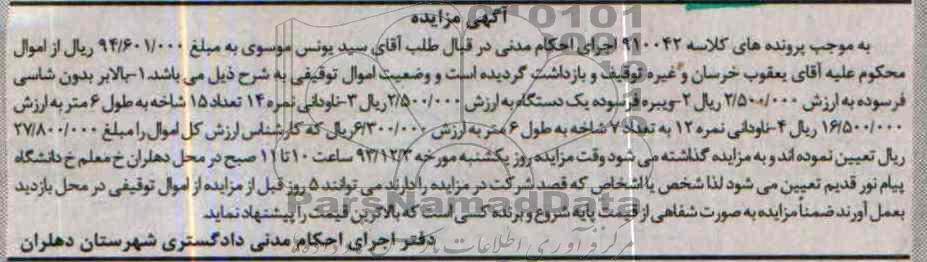 آگهی مزایده
به موجب پرونده های کلاسه ۹۱۰۰۴۲ اجرای احکام مدنی در قبال طلب آقای سید یونس موسوی به مبلغ ۹۴/۶۰۱/۰۰۰ ریال از اموال
محکوم علیه آقای یعقوب خرسان و غیره توقیف و بازداشت گردیده است و وضعیت اموال توقیفی به شرح ذیل می باشد. ۱-بالابر بدون شاسی
فرسوده به ارزش ۲/۵۰۰/۰۰۰ ریال ۲-ویبره فرسوده یک دستگاه به ارزش ۲/۵۰۰/۰۰۰ ریال ۳-ناودانی نمره ۱۴ تعداد ۱۵ شاخه به طول ۶ متر به ارزش
۱۶/۵۰۰/۰۰۰ ریال ۴-ناودانی نمره ۱۲ به تعداد ۷ شاخه به طول ۶ متر به ارزش ۶/۳۰۰/۰۰۰ ریال که کارشناس ارزش کل اموال را مبلغ ۲۷/۸۰۰/۰۰۰
ریال تعیین نموده اند و به مزایده گذاشته می شود وقت مزایده روز یکشنبه مورخه ۹۳/۱۲/۳ ساعت ۱۰ تا ۱۱ صبح در محل دهلران خ معلم خ دانشگاه
پیام نور قدیم تعیین می شود لذا شخص یا اشخاص که قصد شرکت در مزایده را دارند می توانند ۵ روز قبل از مزایده از اموال توقیفی در محل بازدید
بعمل آورند ضمناً مزایده به صورت شفاهی از قیمت پایه شروع و برنده کسی است که بالاترین قیمت را پیشنهاد نماید.
دفتر اجرای احکام مدنی دادگستری شهرستان دهلران
ParsNamadData